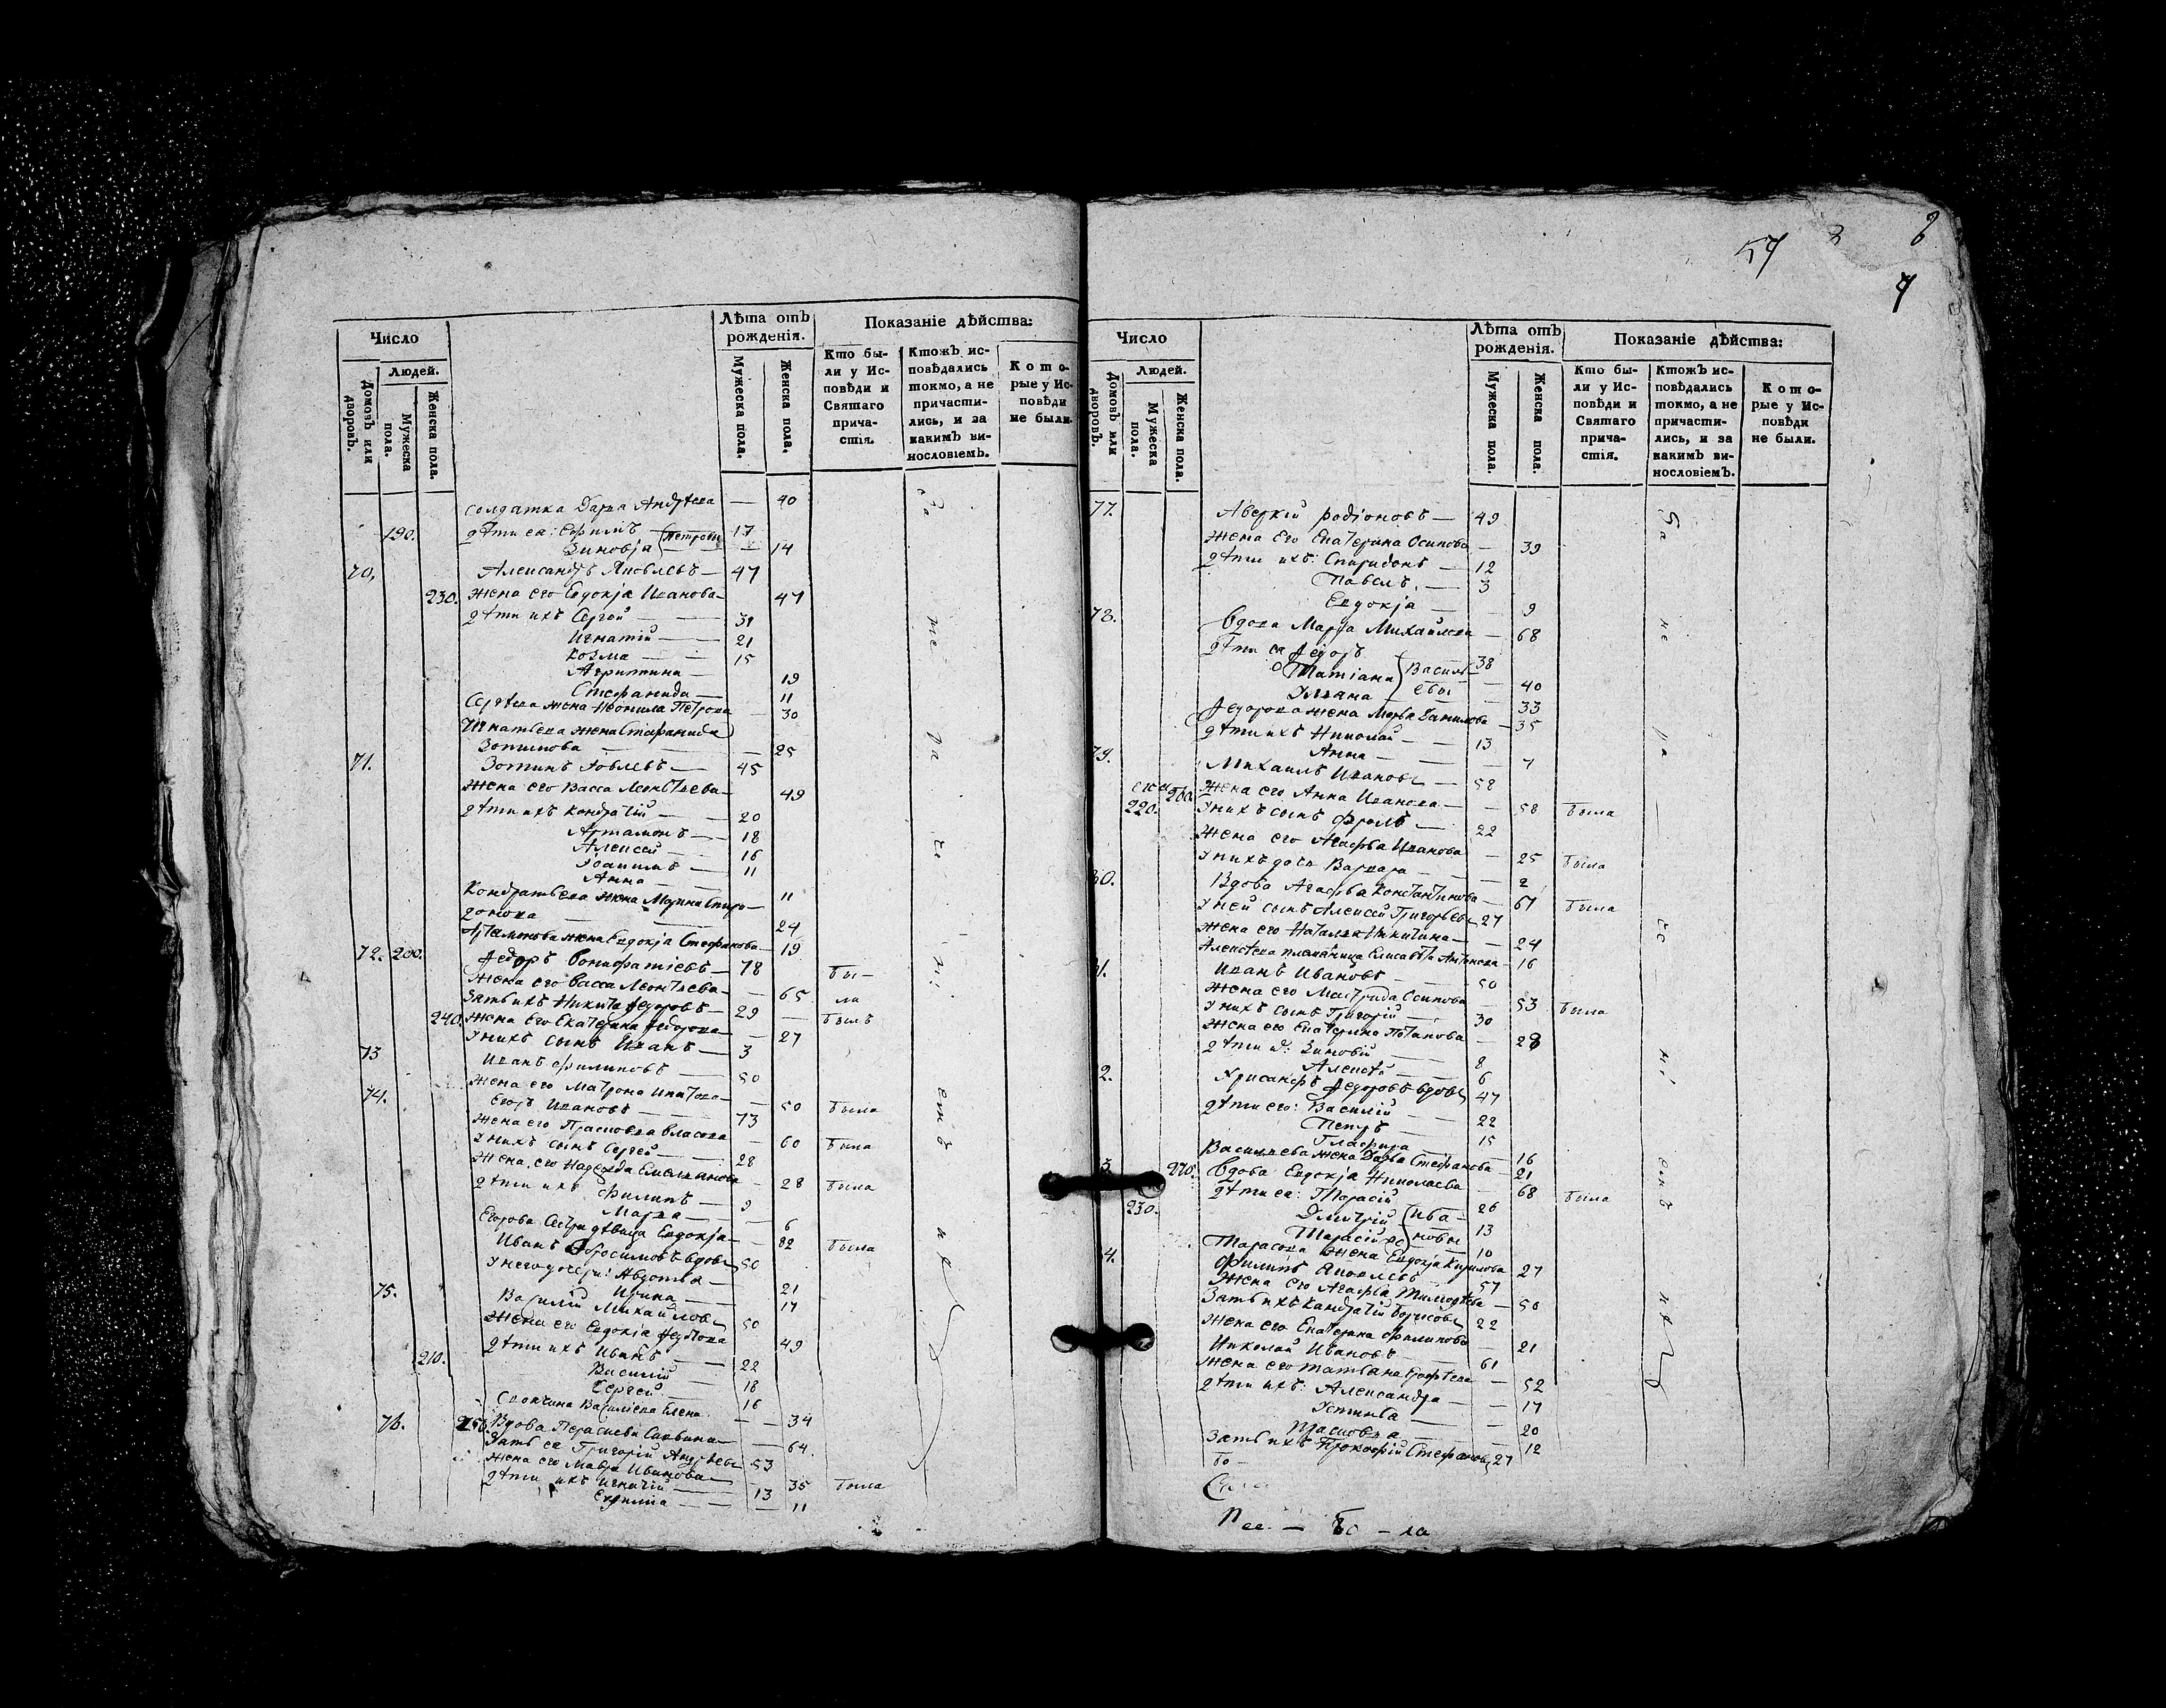 Число
Людей.
Домовъ или дворовъ.
Мужеска пола.
Женска пола.
Лѣта отъ рожденія.
Мужеска пола.
Женска пола.
Показаніе дѣйства:
Кто бы-
ли у Ис-
повѣди и
Святаго
прича-
стія.
Ктожъ ис-
повѣдались
токмо, а не
причасти-
лись, и за
какимъ ви-
нословіемъ.
Кото-
рые у Ис-
повѣди
не были.
солдатка Дарья Андрѣева — 40
190. дѣти еа: Ефимъ Петровы 17
Зиновја — 14
70. Александръ Яковлевъ — 47
230. жена его Евдокја Иванова — 47
дѣти ихъ Сергей — 31
Игнатій — 21
Козма — 15
Агриппина — 19
Стефанида — 11
Сергѣева жена Неонила Петрова — 30
Игнатьева жена Стефанида
Зотикова — 25
71. Зотикъ Іовлевъ — 45
жена его Васса Леонтьева — 49
дѣти ихъ Кондратій — 20
Артамонъ — 18
Алексей — 16
Іоакимъ — 11
Анна — 11
Кондратьева жена Марина Спири-
донова — 24
Артамонова жена Евдокја Стефанова — 19
72. 200. Федоръ Вонифатіевъ — 78 бы-
жена его Васса Леонтьева — 65 ли
Зять ихъ Никита Федоровъ — 29 — былъ
240. жена Его Екатерина Федорова — 27
Унихъ сынъ Иванъ — 3
73 Иванъ Филиповъ — 50
жена его Матрона Игнатова — 50 была
74. Егоръ Ивановъ — 73
жена его Прасковья Власова — 60 была
Унихъ сынъ Сергей — 28
Жена его Надежда Емельянова — 28 была
дѣти ихъ Филипъ — 9
Марья — 6
Егорова Сестра дѣвица Евдокја — 82 была
Иванъ Абросимовъ вдовъ 50
Унего дочери: Авдотья — 21
Ирина — 17
75. Василій Михайловъ 50
жена его Евдокја Федотова 49
210. дѣти ихъ Иванъ — 22
Василій — 18
Сергей — 16
Василіева Елена — 34
76. 250. Вдова Параскева Саввина — 64.
Зять еа Григорій Андрѣевъ 53
жена его Мавра Иванова — 35 была
дѣти ихъ Игнатій — 13
Ефимia — 11
За те ра че ні емъ
57 3 8
7
Число
Людей.
Домовъ или дворовъ.
Мужеска пола.
Женска пола.
Лѣта отъ рожденія.
Мужеска пола.
Женска пола.
Показаніе дѣйства:
Кто бы-
ли у Ис-
повѣди и
Святаго
прича-
стія.
Ктожъ ис-
повѣдались
токмо, а не
причасти-
лись, и за
какимъ ви-
нословіемъ.
Кото-
рые у Ис-
повѣди
не были.
77. Аверкій Родіоновъ — 49
жена Его Екатерина Осипова — 39
дѣти ихъ: Спиридонъ — 12
Павелъ — 3
Евдокја — 9
78. Вдова Марфа Михайлова — 68
дѣти еа Федоръ 38
Татіана Василь- — 40
Ульана евы — 33
Федорова жена Марья Данилова — 35
дѣти ихъ Николай — 13
Анна — 7
79. Михаилъ Ивановъ — 58
260. жена его Анна Иванова — 58 была
220. Унихъ сынъ Фролъ — 22
жена его Агафья Иванова — 25 была
Унихъ дочь Варвара — 2
80. Вдова Агафья Константинова — 67 была
Уней сынъ Алексей Григорьевъ 27
жена его Наталья Никитина — 24
Алексѣева племяница Елисавѣта Антонова — 16
81. Иванъ Ивановъ — 50
жена его Матрида Осипова — 53 была
Унихъ сынъ Григорій — 30
жена его Екатерина Потапова — 28
дѣти ихъ: Зиновій — 8
Алексѣй — 6
2. Хрисанфъ Федоровъ вдовъ 47
дѣти его: Василій — 22
Петръ — 15
Глафира — 16
Васильева жена Дарья Стефанова — 21
3. 270. Вдова Евдокја Николаева — 68 была
дѣти еа: Тарасій 26
230. Димитрій Ива- 13
Тарасій новы 10
Тарасова жена Евдокја Кирилова 27
4. Филипъ Яковлевъ — 57
жена его Агафіа Тимофѣева — 50
Зять ихъ Кандратій Борисовъ 22
жена его Екатерина Филипова — 21
Николай Ивановъ — 61
жена его Татьяна Ерофѣева — 52
дѣти ихъ: Александра — 17
Устинья — 20
Прасковья — 12
Зять ихъ Прокофій Стефановъ 27